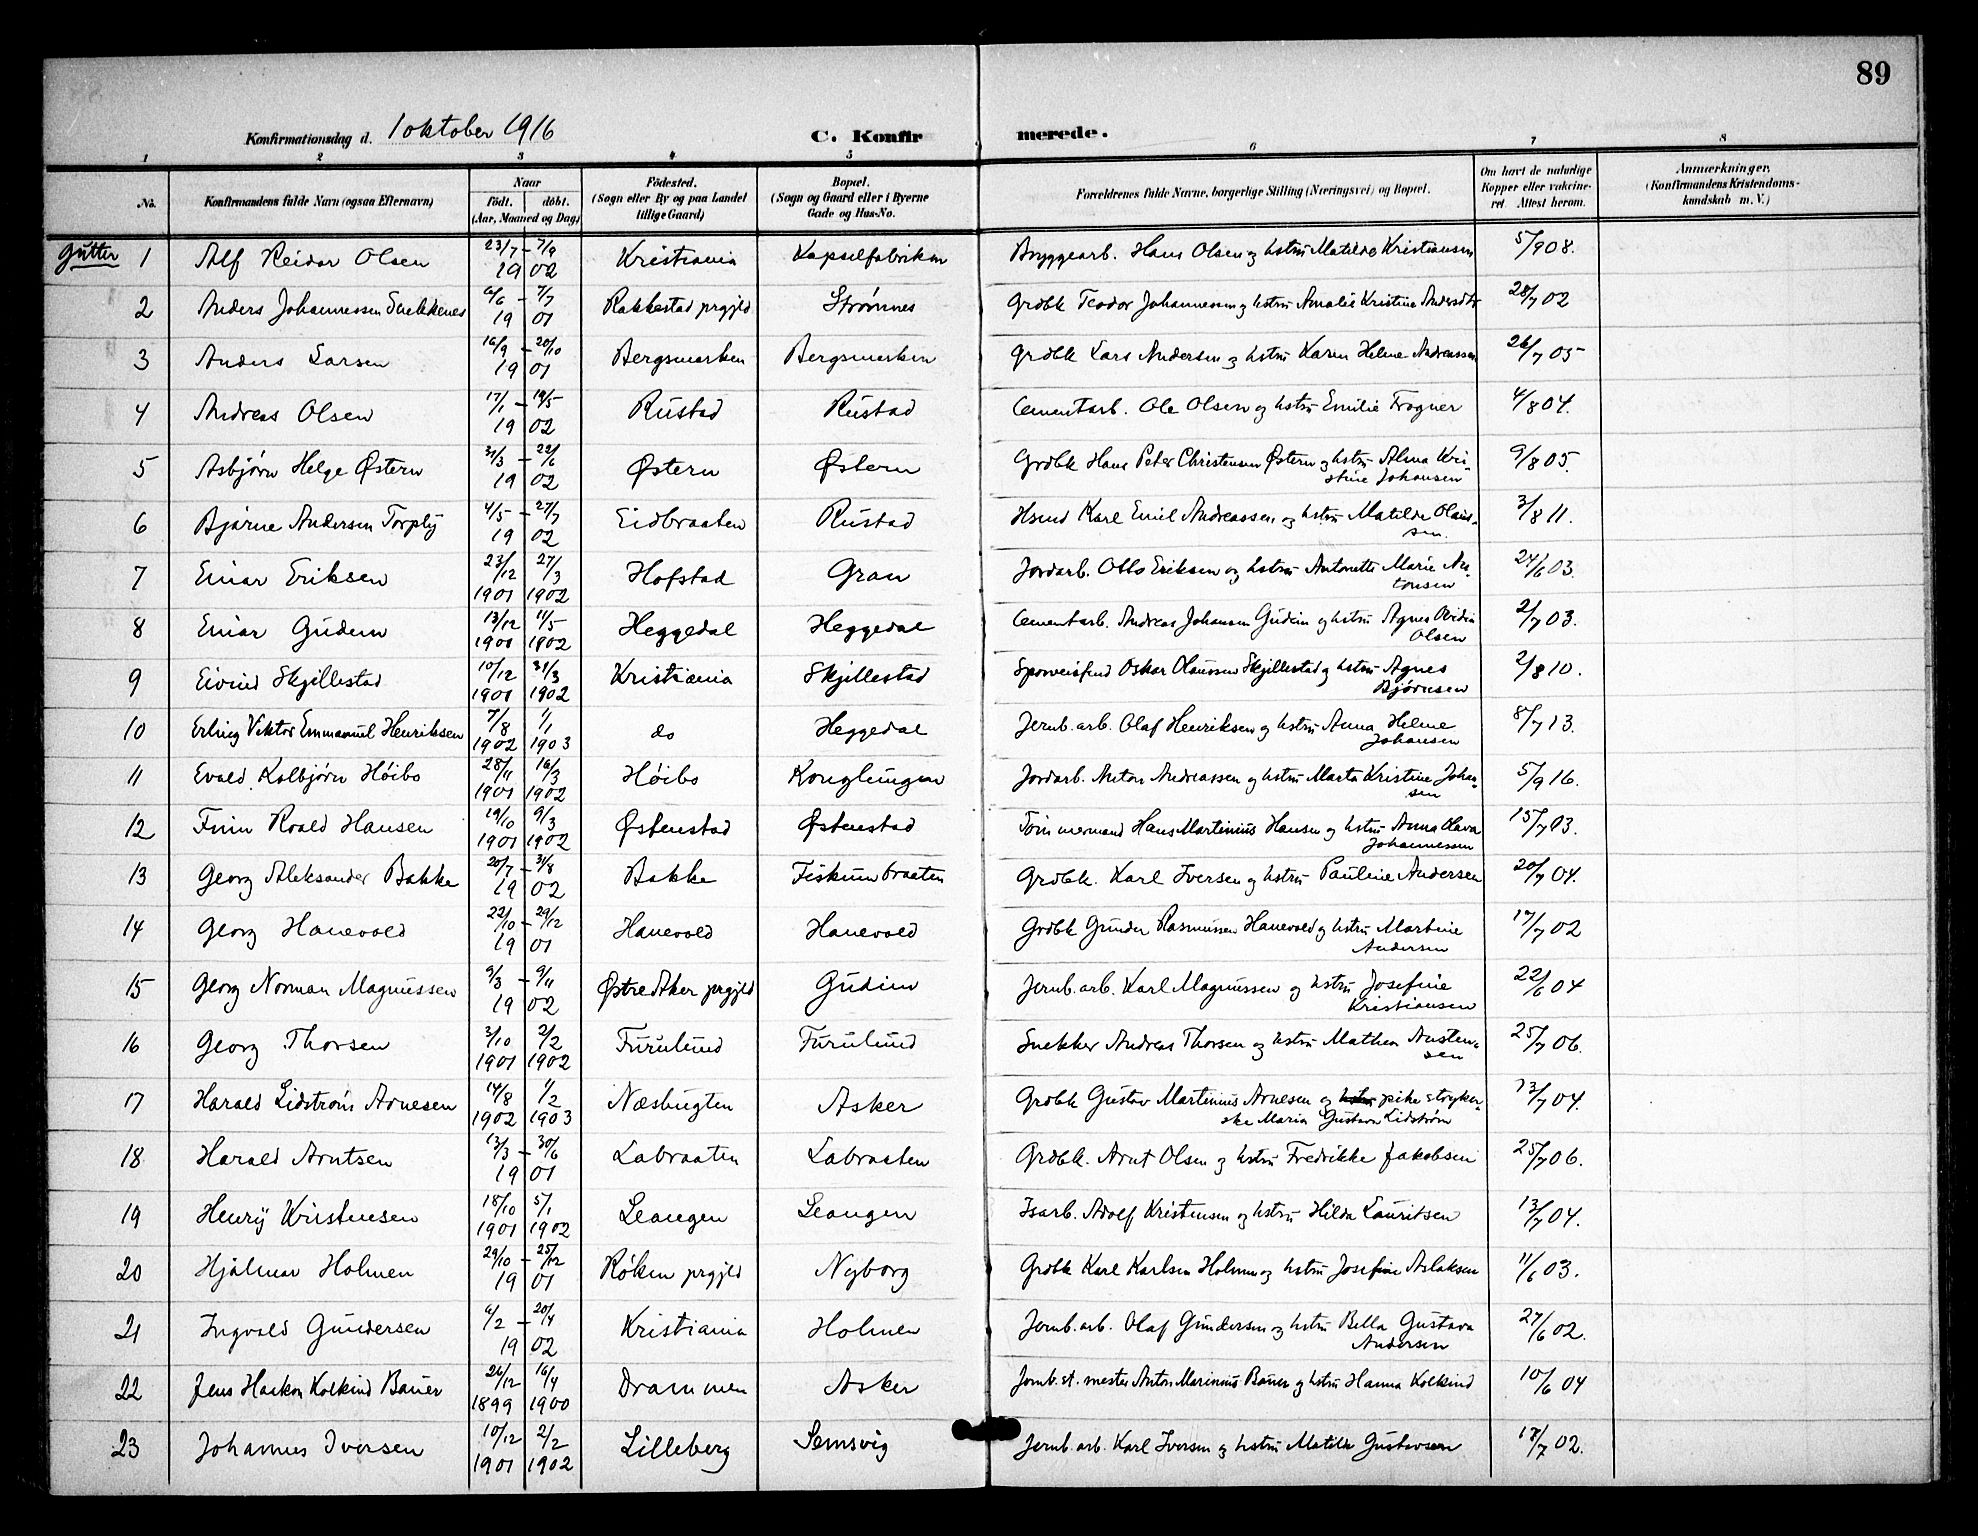 89
Konfirmationsdag d. 1 oktober 1916 C. Konfir merede.
1 2 3 4 5 6 7 8
No. Konfirmandens fulde Navn (ogsaa Efternavn) Naar födt. döbt. (Aar, Maaned og Dag) Födested. (Sogn eller By og paa Landet tillige Gaard) Bopæl. (Sogn og Gaard eller i Byerne Gade og Hus-No. Forældrenes fulde Navne, borgerlige Stilling (Næringsvei) og Bopæl. Om havt de naturlige Kopper eller vakcineret. Attest herom. Anmærkninger. (Konfirmandens Kristendomskundskab m. V.)
Gutter 1 Alf Reidar Olsen 23/7 - 7/9 1902 Kristiania Kapselfabriken Bryggearb. Hans Olsen og hstru Matilde Kristiansen 5/9 08.
2 Anders Johannessen Snekkenes 6/6 - 7/7 1901 Rakkestad prgjld Strømnes Grdbk Teodor Johannessen og hstru Amalie Kristine Andersdtr 28/7 02
3 Anders Larsen 16/9 - 20/10 1901 Bergsmarken Bergsmarken Grdbk Lars Andersen og hstru Karen Helene Andreassen 26/7 05
4 Andreas Olsen 17/1 - 19/5 1902 Rustad Rustad Cementarb. Ole Olsen og hstru Emilie Frogner 4/8 04.
5 Asbjørn Helge Østern 31/3 - 22/6 1902 Østern Østern Grdbk Hans Peter Christensen Østern og hstru Alma Kri-
stine Johansen 9/8 05.
6 Bjarne Andersen Torply 4/5 - 27/7 1902 Eidbraaten Rustad Hsmd Karl Emil Andreassen og hstru Matilde Olaus-
sen. 3/8 11.
7 Einar Eriksen 23/12 1901 27/3 1902 Hofstad Gran Jordarb. Otto Eriksen og hstru Antonette Marie An-
tonsen 24/6 03.
8 Einar Gudem 13/12 1901 11/5 1902 Heggedal Heggedal Cementarb. Andreas Johansen Gudim og hstru Agnes Ovidia
Olsen 2/7 03.
9 Eivind Skjillestad 10/12 1901 31/3 1902 Kristiania Skjillestad Sporveisfund Oskar Olaussen Skjillestad og hstru Agnes
Bjørnsen 2/8 10.
10 Erling Viktor Emmanuel Henriksen 7/8 1902 1/1 1903 do Heggedal Jernb.arb. Olaf Henriksen og hstru Anna Helene
Johansen 8/7 13.
11 Evald Kolbjørn Høibo 28/11 1901 16/3 1902 Høibo Konglungen Jordarb. Anton Andreassen og hstru Marta Kristine Johan-
sen 5/9 16.
12 Finn Roald Hansen 19/10 1901 9/3 1902 Østenstad Østenstad Tømmermand Hans Martinius Hansen og hstru Anna Olava
Johannessen 15/7 03.
13 Georg Aleksander Bakke 20/7 - 31/8 1902 Bakke Fiskumbraaten Grdbk. Karl Iversen og hstru Pauline Andersen 20/7 04.
14 Georg Hanevold 22/10 - 29/12 1901 Hanevold Hanevold Grdbk Gunder Rasmussen Hanevold og hstru Martine
Andersen 17/7 02
15 Georg Norman Magnussen 9/3 - 9/11 1902 Østre Aker prgjld Gudim Jernb.arb. Karl Magnussen og hstru Josefine
Kristiansen 22/6 04
16 Georg Thorsen 3/10 1901 2/2 1902 Furulund Furulund Snekker Andreas Thorsen og hstru Mathea Austen-
sen 25/7 06.
17 Harald Lidstrøm Arnesen 14/8 1902 1/2 1903 Næsbugten Asker Grdbk Gustav Martinius Arnesen og hstru pike stryker-
ske Maria Gustava Lidstrøm 13/7 04.
18 Harald Arntsen 13/3 - 30/6 1901 Labraaten Labraaten Grdbk. Arnt Olsen og hstru Fredrikke Jakobsen 25/7 06.
19 Henry Kristensen 18/10 1901 5/1 1902 Leangen Leangen Isarb. Adolf Kristensen og hstru Hilda Lauritsen 13/7 04.
20 Hjalmar Holmen 29/10 - 25/12 1901 Røken prgjld Nyborg Grdbk Karl Karlsen Holmen og hstru Josefine Aslaksen 11/6 03.
21 Ingvald Gundersen 6/2 - 20/4 1902 Kristiania Holmen Jernb.arb. Olaf Gundersen og hstru Bella Gustava
Andersen 27/6 02.
22 Jens Haakon Kolkind Bauer 26/12 1899 16/4 1900 Drammen Asker Jernb.st.mester Anton Marinius Bauer og hstru Hanna Kolkind 10/6 04
23 Johannes Iversen 10/12 1901 2/2 1902 Lilleberg Semsvig Jernb.arb. Karl Iversen og hstru Matilde Gustavsen 17/7 02.